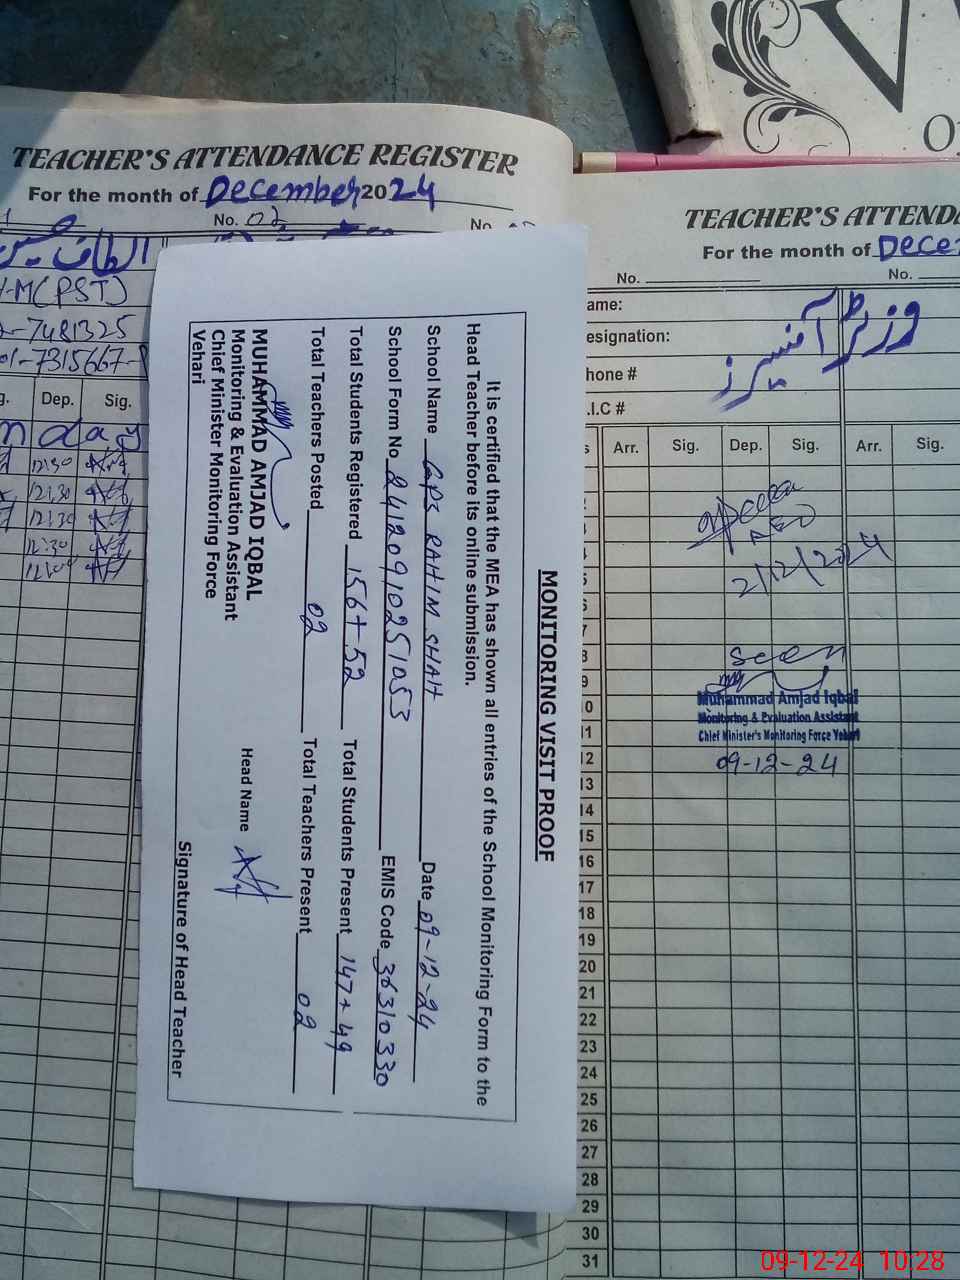 V
TEACHER'S ATTENDANCE REGISTER
For the month of December 2024
No. 02
No.
الطاف حسین
M(PST)
7481325
01-7315667-
Dep. Sig.
day
12:30
12:30
12:30
12:30
MONITORING VISIT PROOF
It is certified that the MEA has shown all entries of the School Monitoring Form to the
Head Teacher before its online submission.
School Name GPS RAHIM SHAH Date 09-12-24
School Form No 24120910251053 EMIS Code 36310330
Total Students Registered 156+52 Total Students Present 147+49
Total Teachers Posted 02 Total Teachers Present 02
MUHAMMAD AMJAD IQBAL
Monitoring & Evaluation Assistant
Chief Minister Monitoring Force
Vehari
Head Name
Signature of Head Teacher
TEACHER'S ATTENDA
For the month of Decem
No. No.
ame:
esignation:
hone #
.I.C #
وزٹر آفیسرز
Arr. Sig. Dep. Sig. Arr. Sig.
AEO
2/12/2024
seen
Muhammad Amjad Iqbal
Monitoring & Evaluation Assistant
Chief Minister's Monitoring Force Vehari
09-12-24
7
8
9
10
11
12
13
14
15
16
17
18
19
20
21
22
23
24
25
26
27
28
29
30
31
09-12-24 10:28